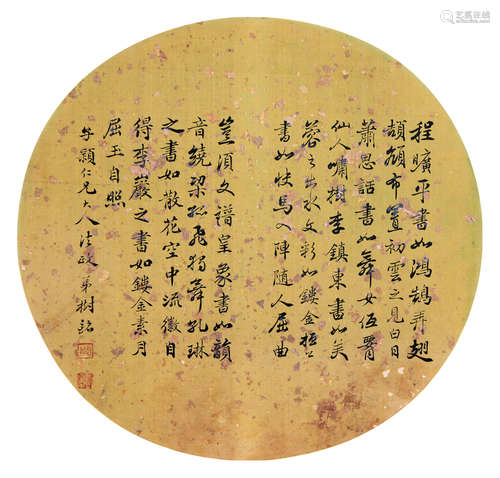 程曠平書如鴻鵠弄翅
頡頏布置初雲之見白日
蕭思話書如舞女低腰
仙人嘯樹李鎮東書如芙
蓉之出水文彩如鏤金桓
書如快馬入陣隨人屈曲
豈須文譜皇象書如韻
音繞梁孤飛獨舞孔琳
之書如散花空中流徽自
得李巖之書如鏤金素月
屈玉自照
仁兄大人法政弟樹銘